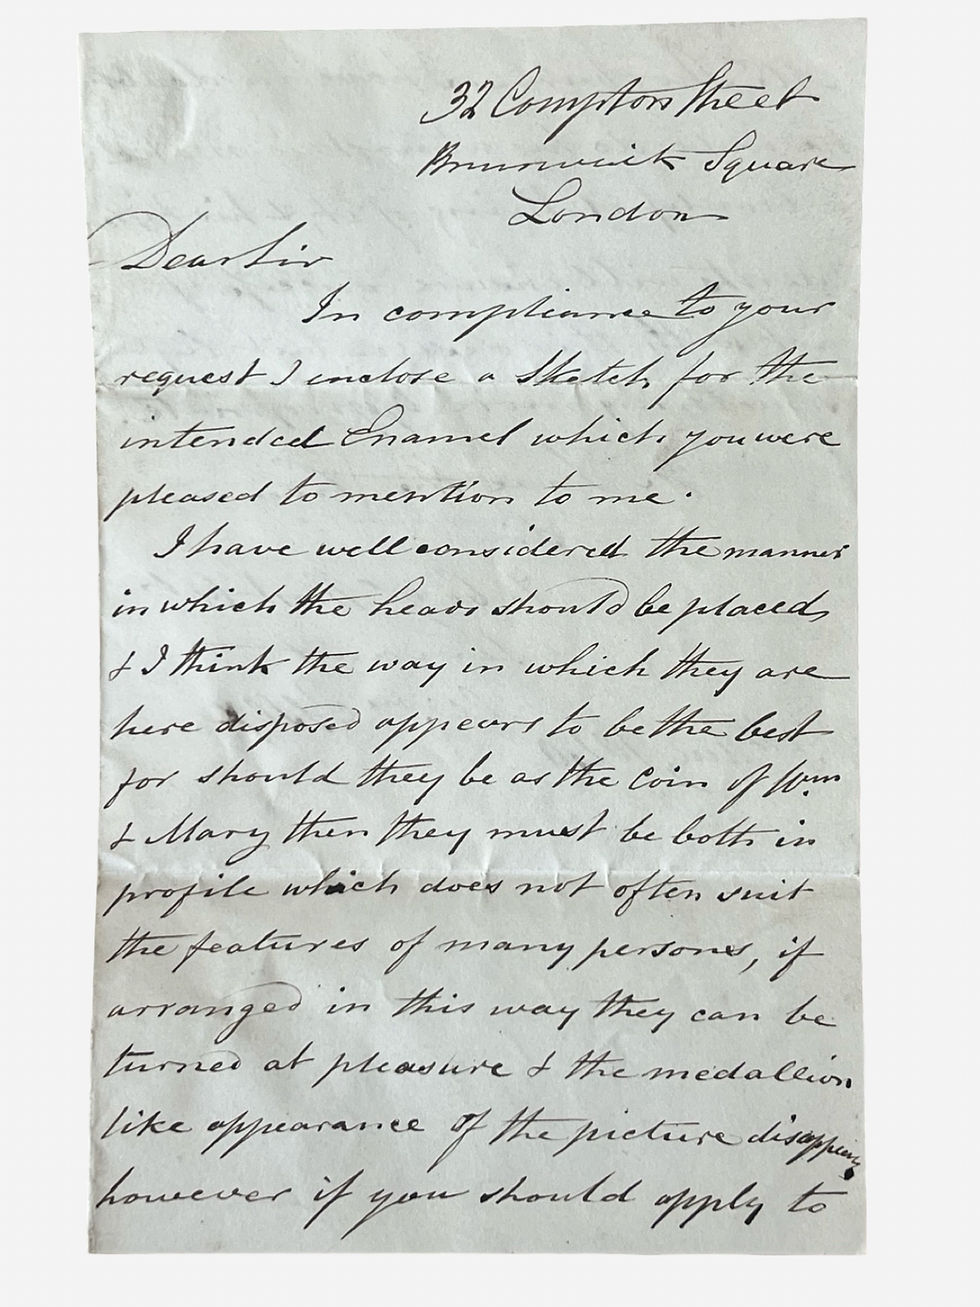 32 Compton Street
Brunswick Square
London
Dear Sir
In compliance to your
request I enclose a Sketch for the
intended Enamel which you were
pleased to mention to me.
I have well considered the manner
in which the heads should be placed,
& I think the way in which they are
here disposed appears to be the best
for should they be as the Coin of Wm
& Mary then they must be both in
profile which does not often suit
the features of many persons, if
arranged in this way they can be
turned at pleasure & the medallion
like appearance of the picture
however if you should apply to